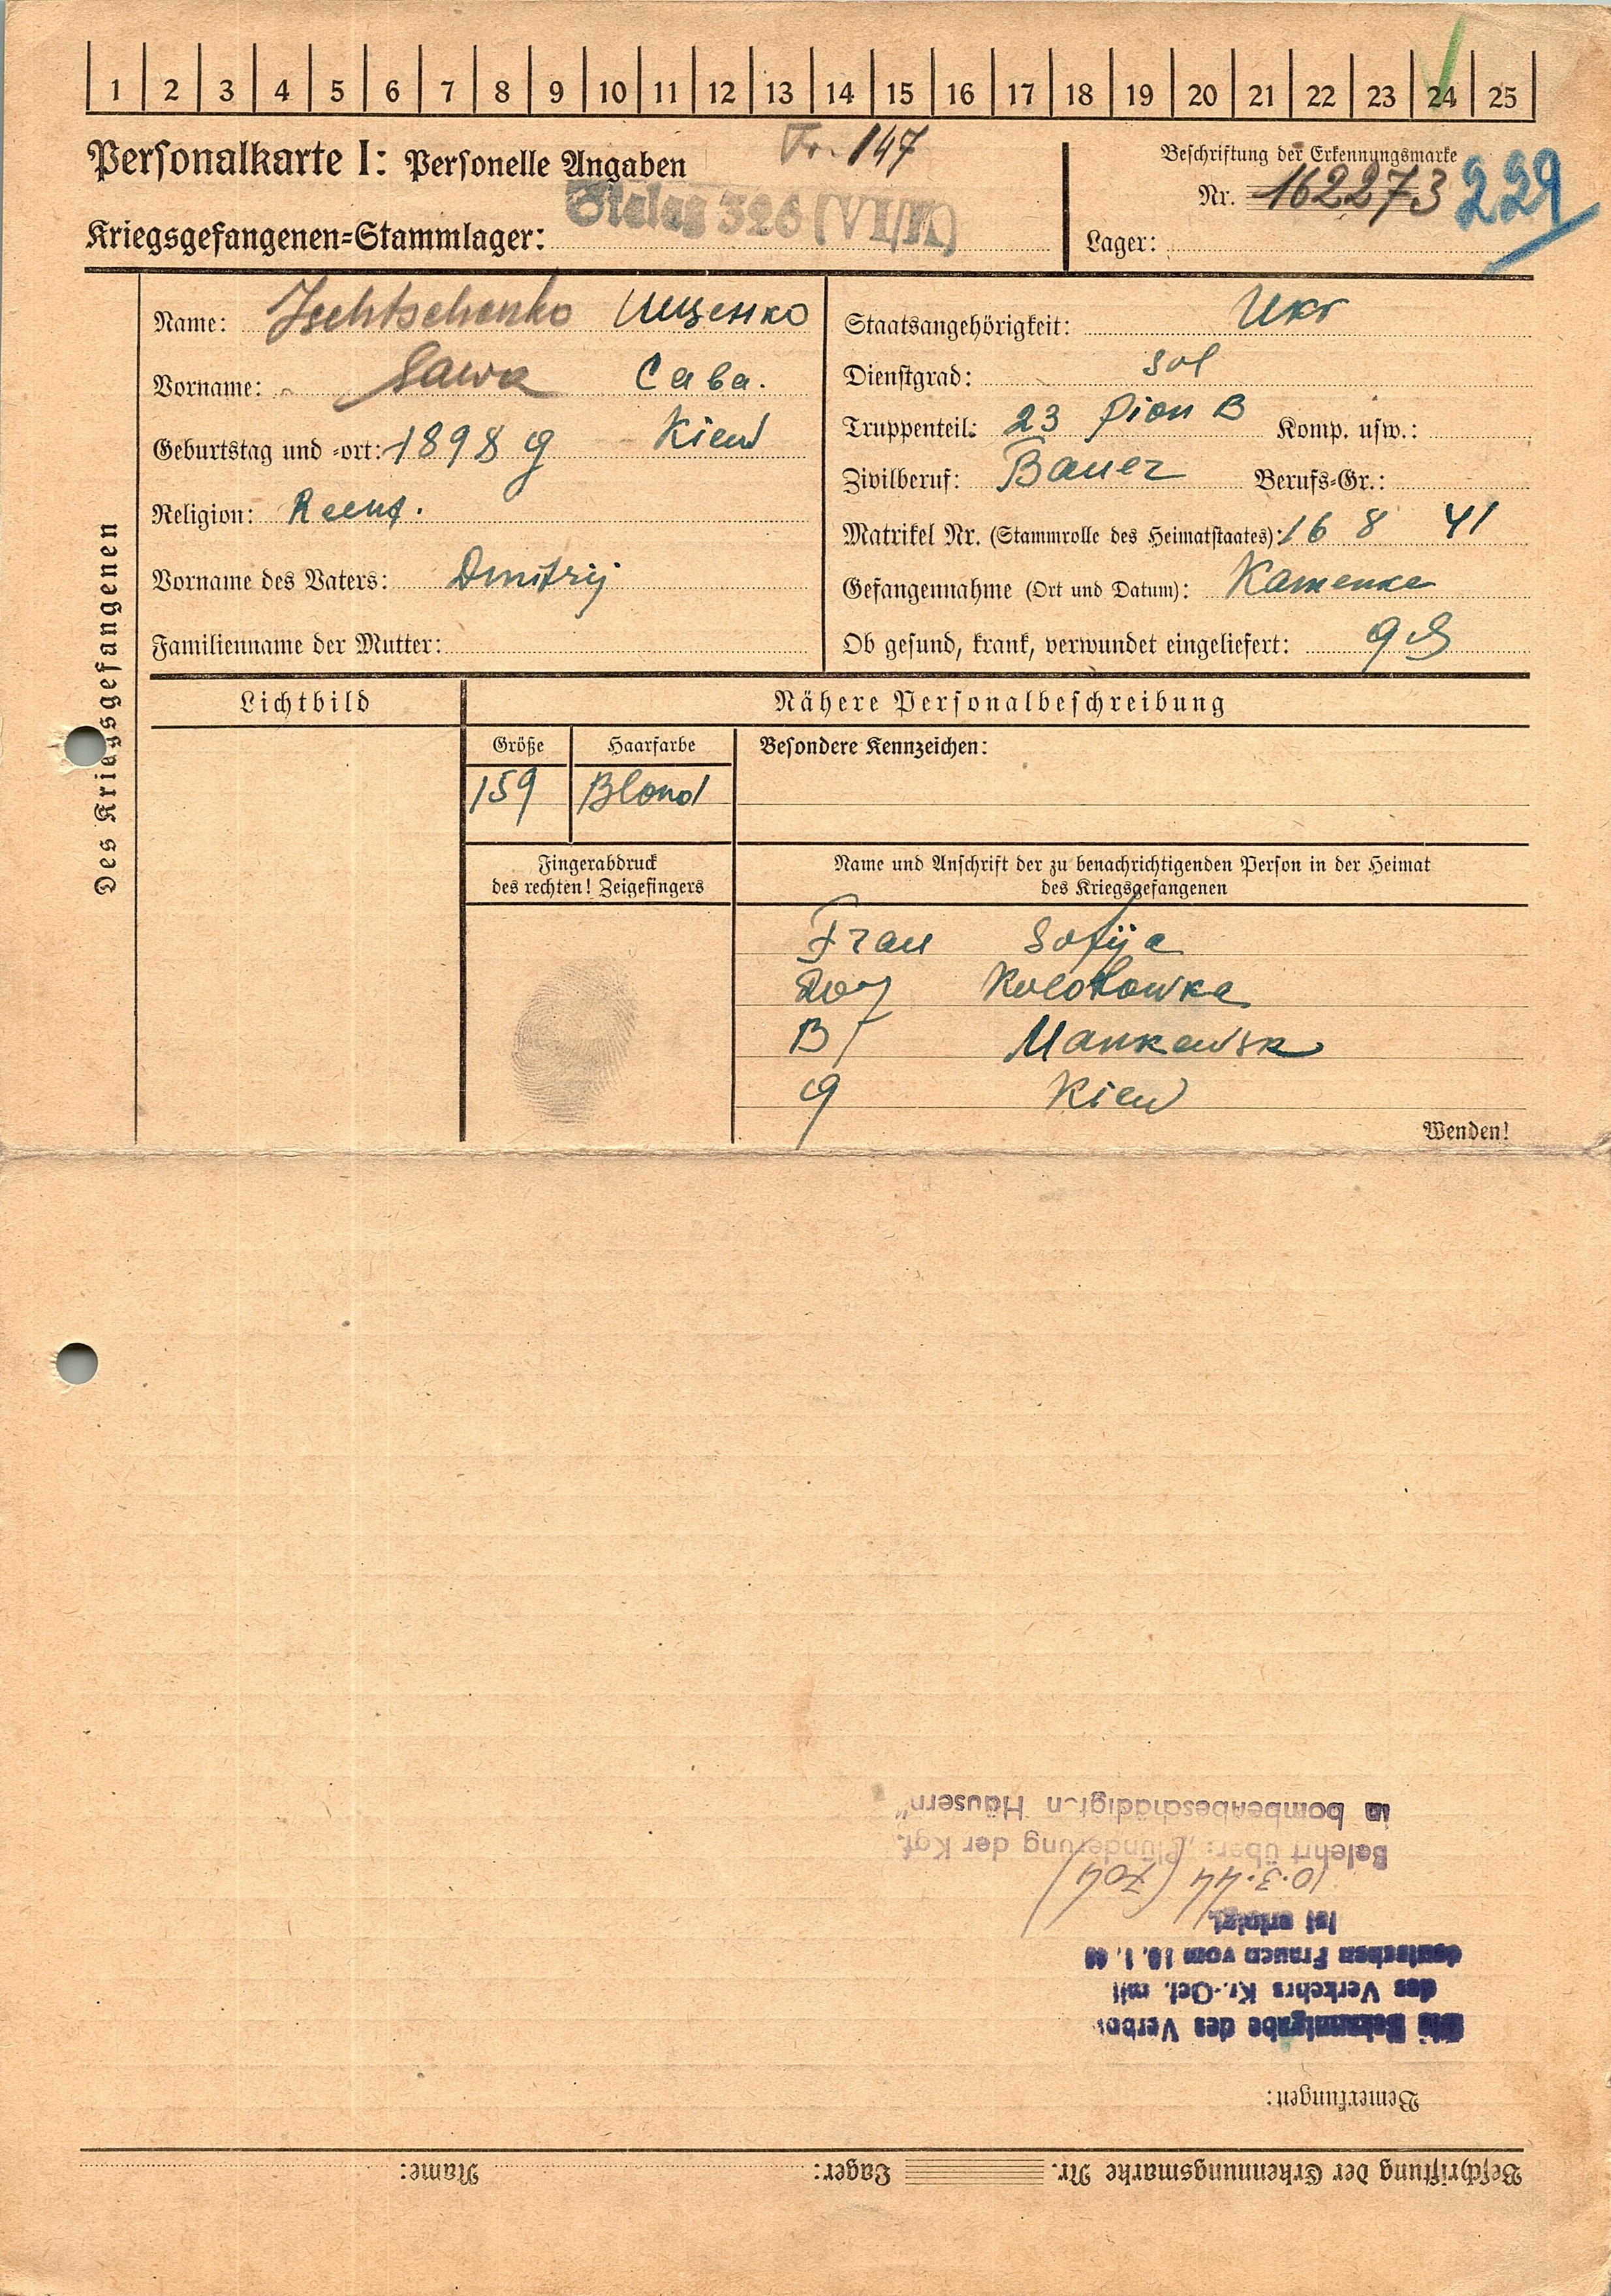 1 2 3 4 5 6 7 8 9 10 11 12 13 14 15 16 17 18 19 20 21 22 23 24 25
Personalkarte I: Personelle Angaben
Fr. 147
Beschriftung der Erkennungsmarke
Nr. 162273 229
Kriegsgefangenen=Stammlager: Stalag 326 (VI/K)
Lager:
Des Kriegsgefangenen
Name: Ischtschenko Ищенко
Vorname: Sawa Сава.
Geburtstag und =ort: 1898 g Kiew
Religion:
Vorname des Vaters: Dmitrij
Familienname der Mutter:
Staatsangehörigkeit: Ukr
Dienstgrad: Sol
Truppenteil: 23 Pion B Komp. usw.:
Zivilberuf: Bauer Berufs=Gr.:
Matrikel Nr. (Stammrolle des Heimatstaates): 16 8 41
Gefangennahme (Ort und Datum): Kamenke
Ob gesund, krank, verwundet eingeliefert: gS
Lichtbild
Nähere Personalbeschreibung
Größe Haarfarbe Besondere Kennzeichen:
159 Blond
Fingerabdruck
des rechten! Zeigefingers
Name und Anschrift der zu benachrichtigenden Person in der Heimat
des Kriegsgefangenen
Frau Sofija
Dorf
B Mankewsk
g Kiew
Wenden!
Beschriftung der Erkennungsmarke Nr. Lager: Name:
Bemerkungen:
Die Bekanntgabe des Verbots
des Verkehrs Kr.-Gef. mit
deutschen Frauen vom 10. 1. 40
ist erfolgt.
10.3.44 (704)
Belehrt über: „Plünderung der Kgf.
in bombenbeschädigten Häusern"